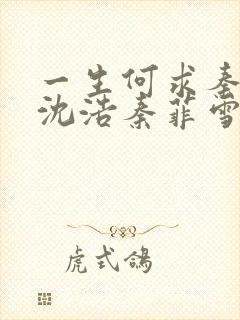 一生何求秦
沈浩秦菲雪
虎式鸽